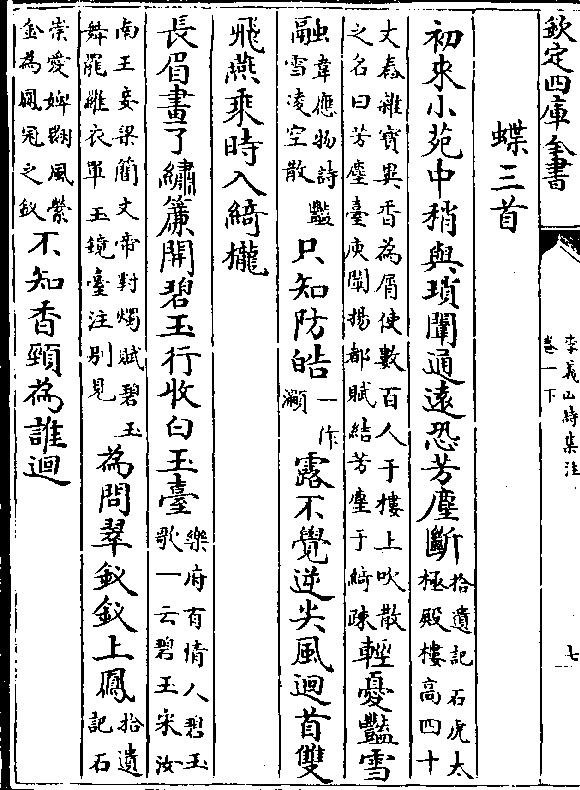 欽定四庫全書
李義山詩集注
卷一下
七
蝶三首
初來小苑中稍與瑣闈通遠恐芳塵斷拾遺記石虎太極殿樓高四十
丈舂雜寳異香為屑使數百人于樓上吹散之名曰芳塵臺庾闡揚都賦結芳塵于綺疎輕憂豔雪
融韋應物詩豔雪凌空散只知防皓一作灝露不覺逆尖風迴首雙
飛燕乘時入綺櫳
長眉畫了繡簾開碧玉行收白玉臺樂府有情人碧玉歌一云碧玉宋汝
南王妾梁簡文帝對燭賦碧玉舞罷羅衣單玉鏡臺注别見為問翠釵釵上鳳拾遺記石
崇愛婢翾風縈金為鳳冠之釵不知香頸為誰迴